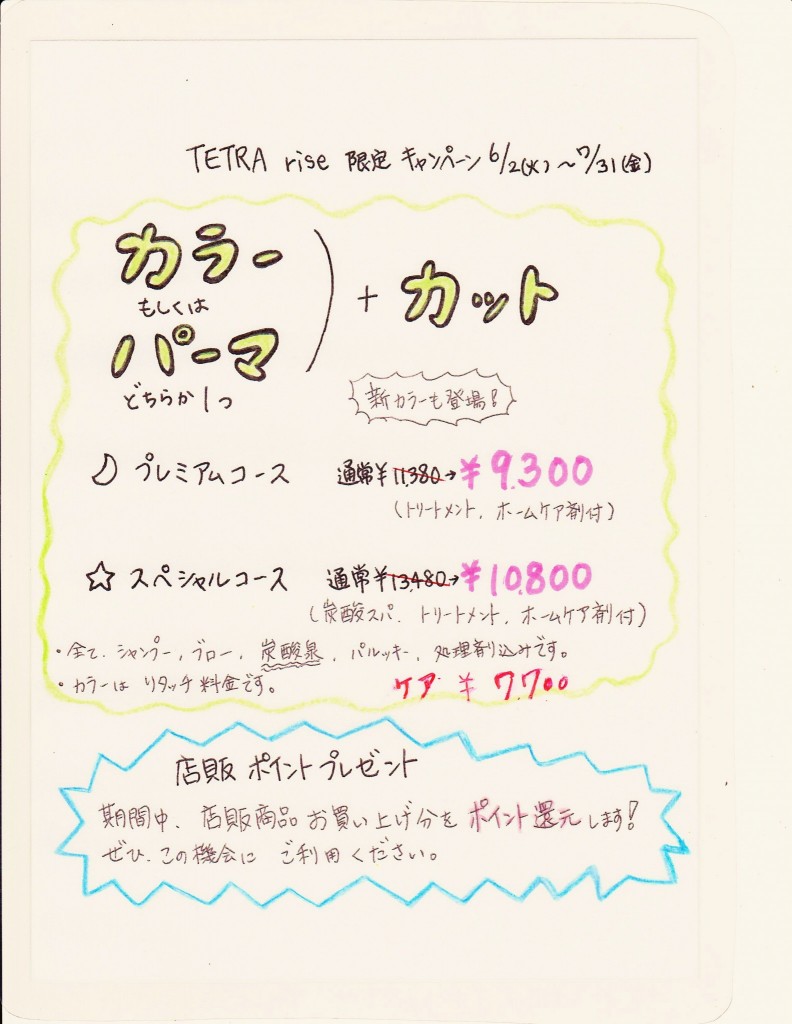 TETRA rise 限定 キャンペーン 6/2(火)~7/31(金)
カラー
もしくは
パーマ
どちらか1つ
+ カット
新カラーも登場!
プレミアムコース 通常¥11,380→¥9,300
(トリートメント、ホームケア剤付)
☆ スペシャルコース 通常¥13,480→¥10,800
(炭酸スパ、トリートメント、ホームケア剤付)
・全て、シャンプー、ブロー、炭酸泉、パルッキー、処理剤込みです。
・カラーは リタッチ料金です。
ケア ¥7.700
店販 ポイントプレゼント
期間中、店販商品お買い上げ分をポイント還元します!
ぜひ、この機会に ご利用ください。